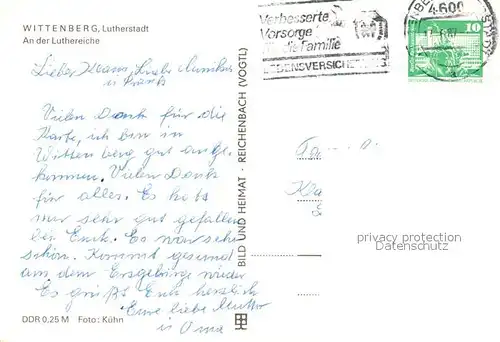 WITTENBERG, Lutherstadt
An der Luthereiche
Lieber Klaus, liebe
u.
Vielen Dank für die
Karte, ich bin in
Wittenberg gut ange-
kommen. Vielen Dank
für alles. Es hats
mir sehr gut gefallen
bei Euch. Es war sehr
schön. Kommt gesund
aus dem Ersgebirge wieder
Es grüßt Euch herzlich
Eure liebe Mutter
u Oma
DDR 0,25 M Foto: Kühn
BILD UND HEIMAT · REICHENBACH (VOGTL)
Verbesserte
Vorsorge
die Familie
LEBENSVERSICHE
4600
10
privacy protection
Datenschutz